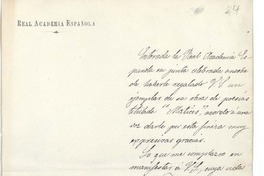 24
REAL ACADEMIA ESPAÑOLA
Enterada la Real Academia Es-
pañola en junta celebrada anoche
de haberle regalado V. S. un
ejemplar de su obra de poesías
titulada "Matices", acordó a una
voz darle por esta fineza muy
expresivas gracias.
Lo que me complazco en
manifestar á V. S., cuya vida